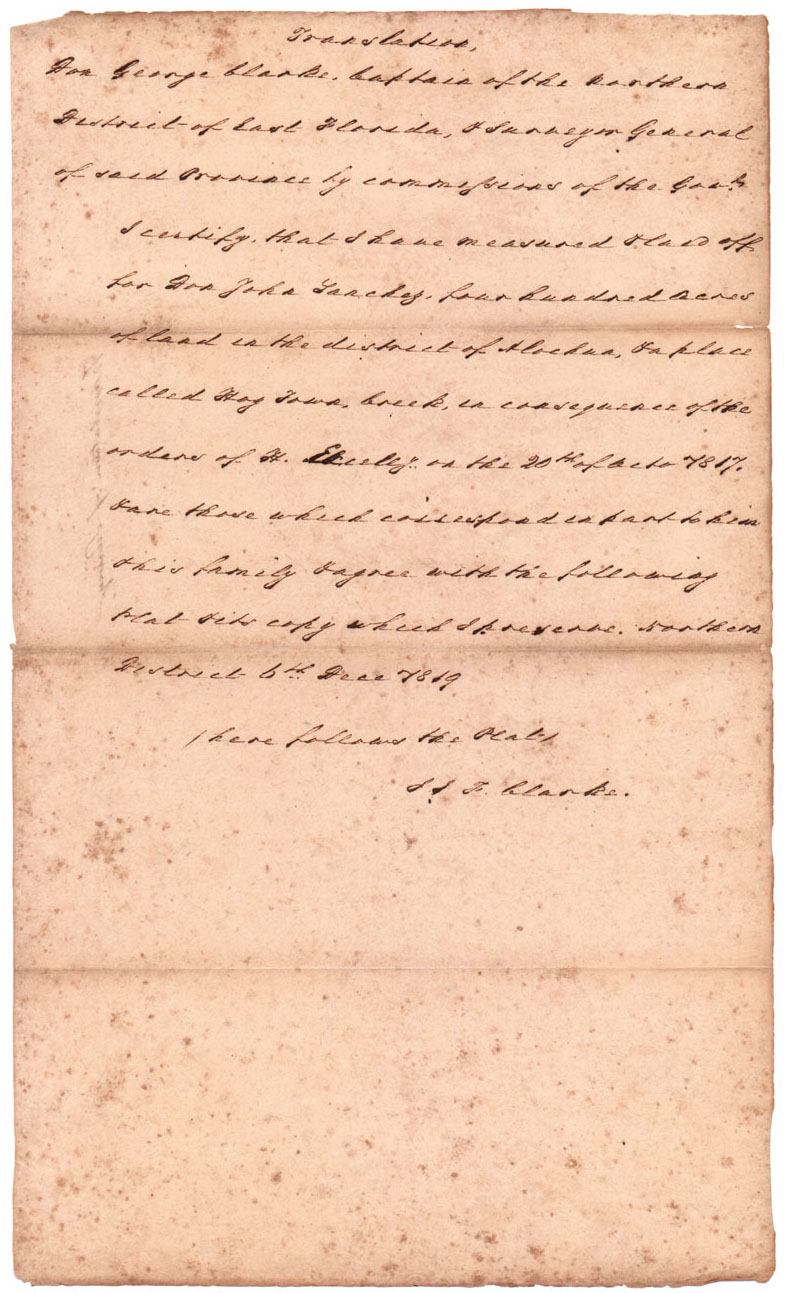 Translation,
Don George Clarke, Captain of the Northern
District of East Florida, & Surveyor General
of said Province by commissions of the Govt.
I certify, that I have measured & laid off
for Don John Sanchez, four hundred acres
of land in the district of Alochua, & a place
called Hog Town, Creek, in consequence of the
orders of H. Excellz. on the 20th of Octo 1817.
& are those which correspond in part to him
& his family & agree with the following
Plat & its copy which I preserve. Northern
District 6th Dece 1819
(here follows the Plat)
F. Clarke.